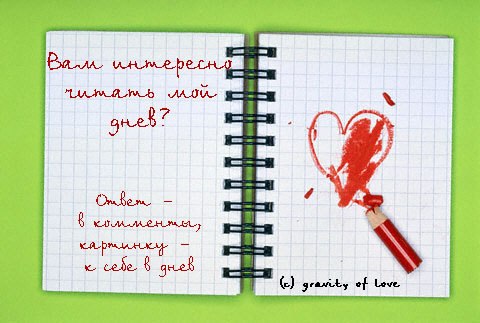 Вам интересно
читать мой
днев?
Ответ -
в комменты,
картинку -
к себе в днев
(c) gravity of love